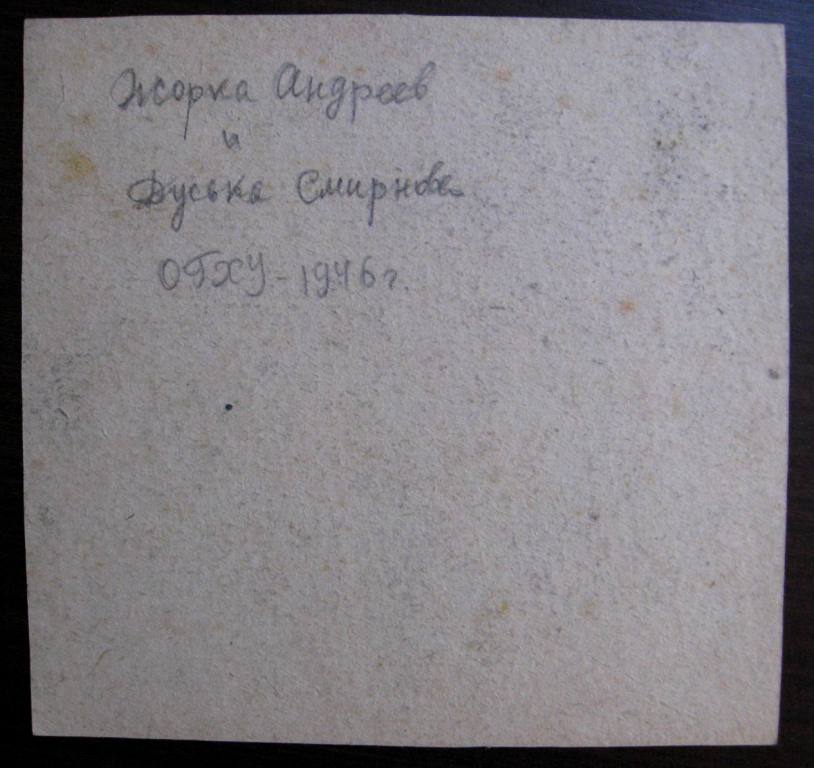 Жорка Андреев
и
Дуська Смирнова
ОГХУ - 1946 г.